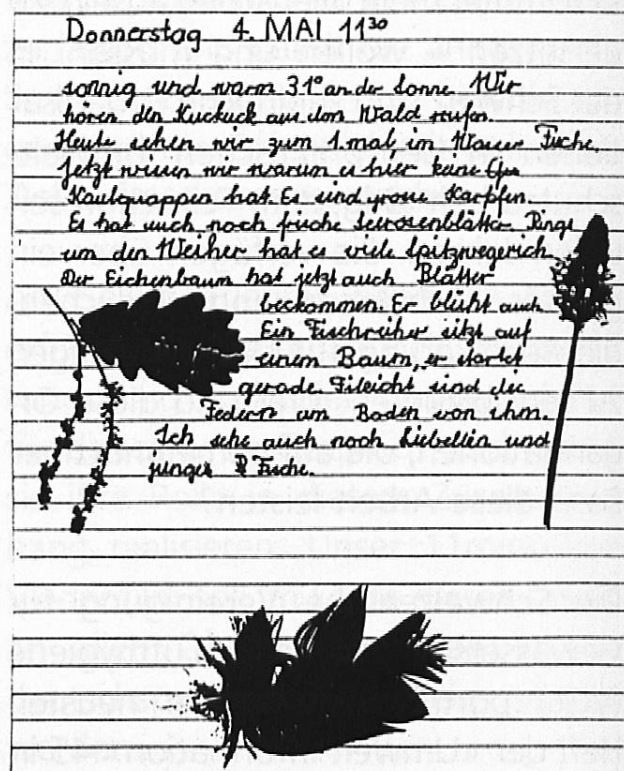 Donnerstag 4. MAI 11³⁰
sonnig und warm 31° an der Sonne. Wir
hören den Kuckuck aus dem Wald rufen.
Heute sehen wir zum 1. mal im Wasser Fische.
Jetzt wissen wir warum es hier keine
Kaulquappen hat. Es sind grosse Karpfen.
Es hat auch noch frische Seerosenblätter. Rings
um den Weiher hat es viele Spitzwegerich.
Der Eichenbaum hat jetzt auch Blätter
bekommen. Er blüht auch.
Ein Fischreiher sitzt auf
einem Baum, er startet
gerade. Fileicht sind die
Federn am Boden von ihm.
Ich sehe auch noch Libellen und
junge Fische.